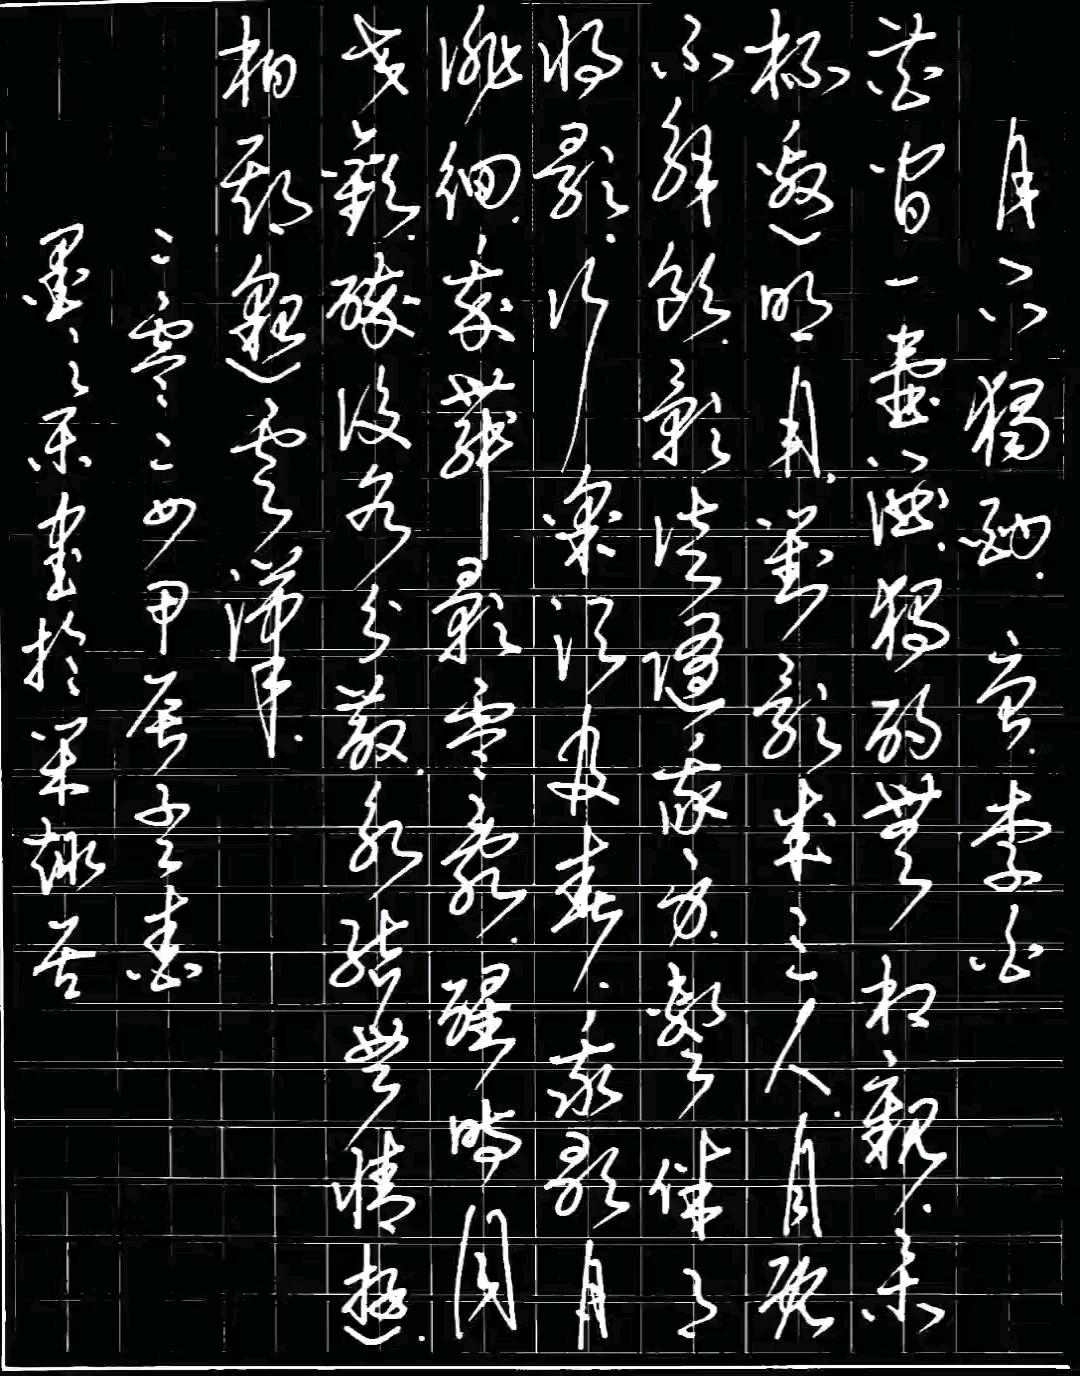 月下獨酌 唐 李白
花間一壺酒獨酌無相親舉
杯邀明月對影成三人月既
不解飲影徒隨我身暫伴月
將影行樂須及春我歌月
徘徊我舞影零亂醒時同
交歡醉後各分散永結無情遊
相期邈雲漢
二零二四甲辰春
墨書於居